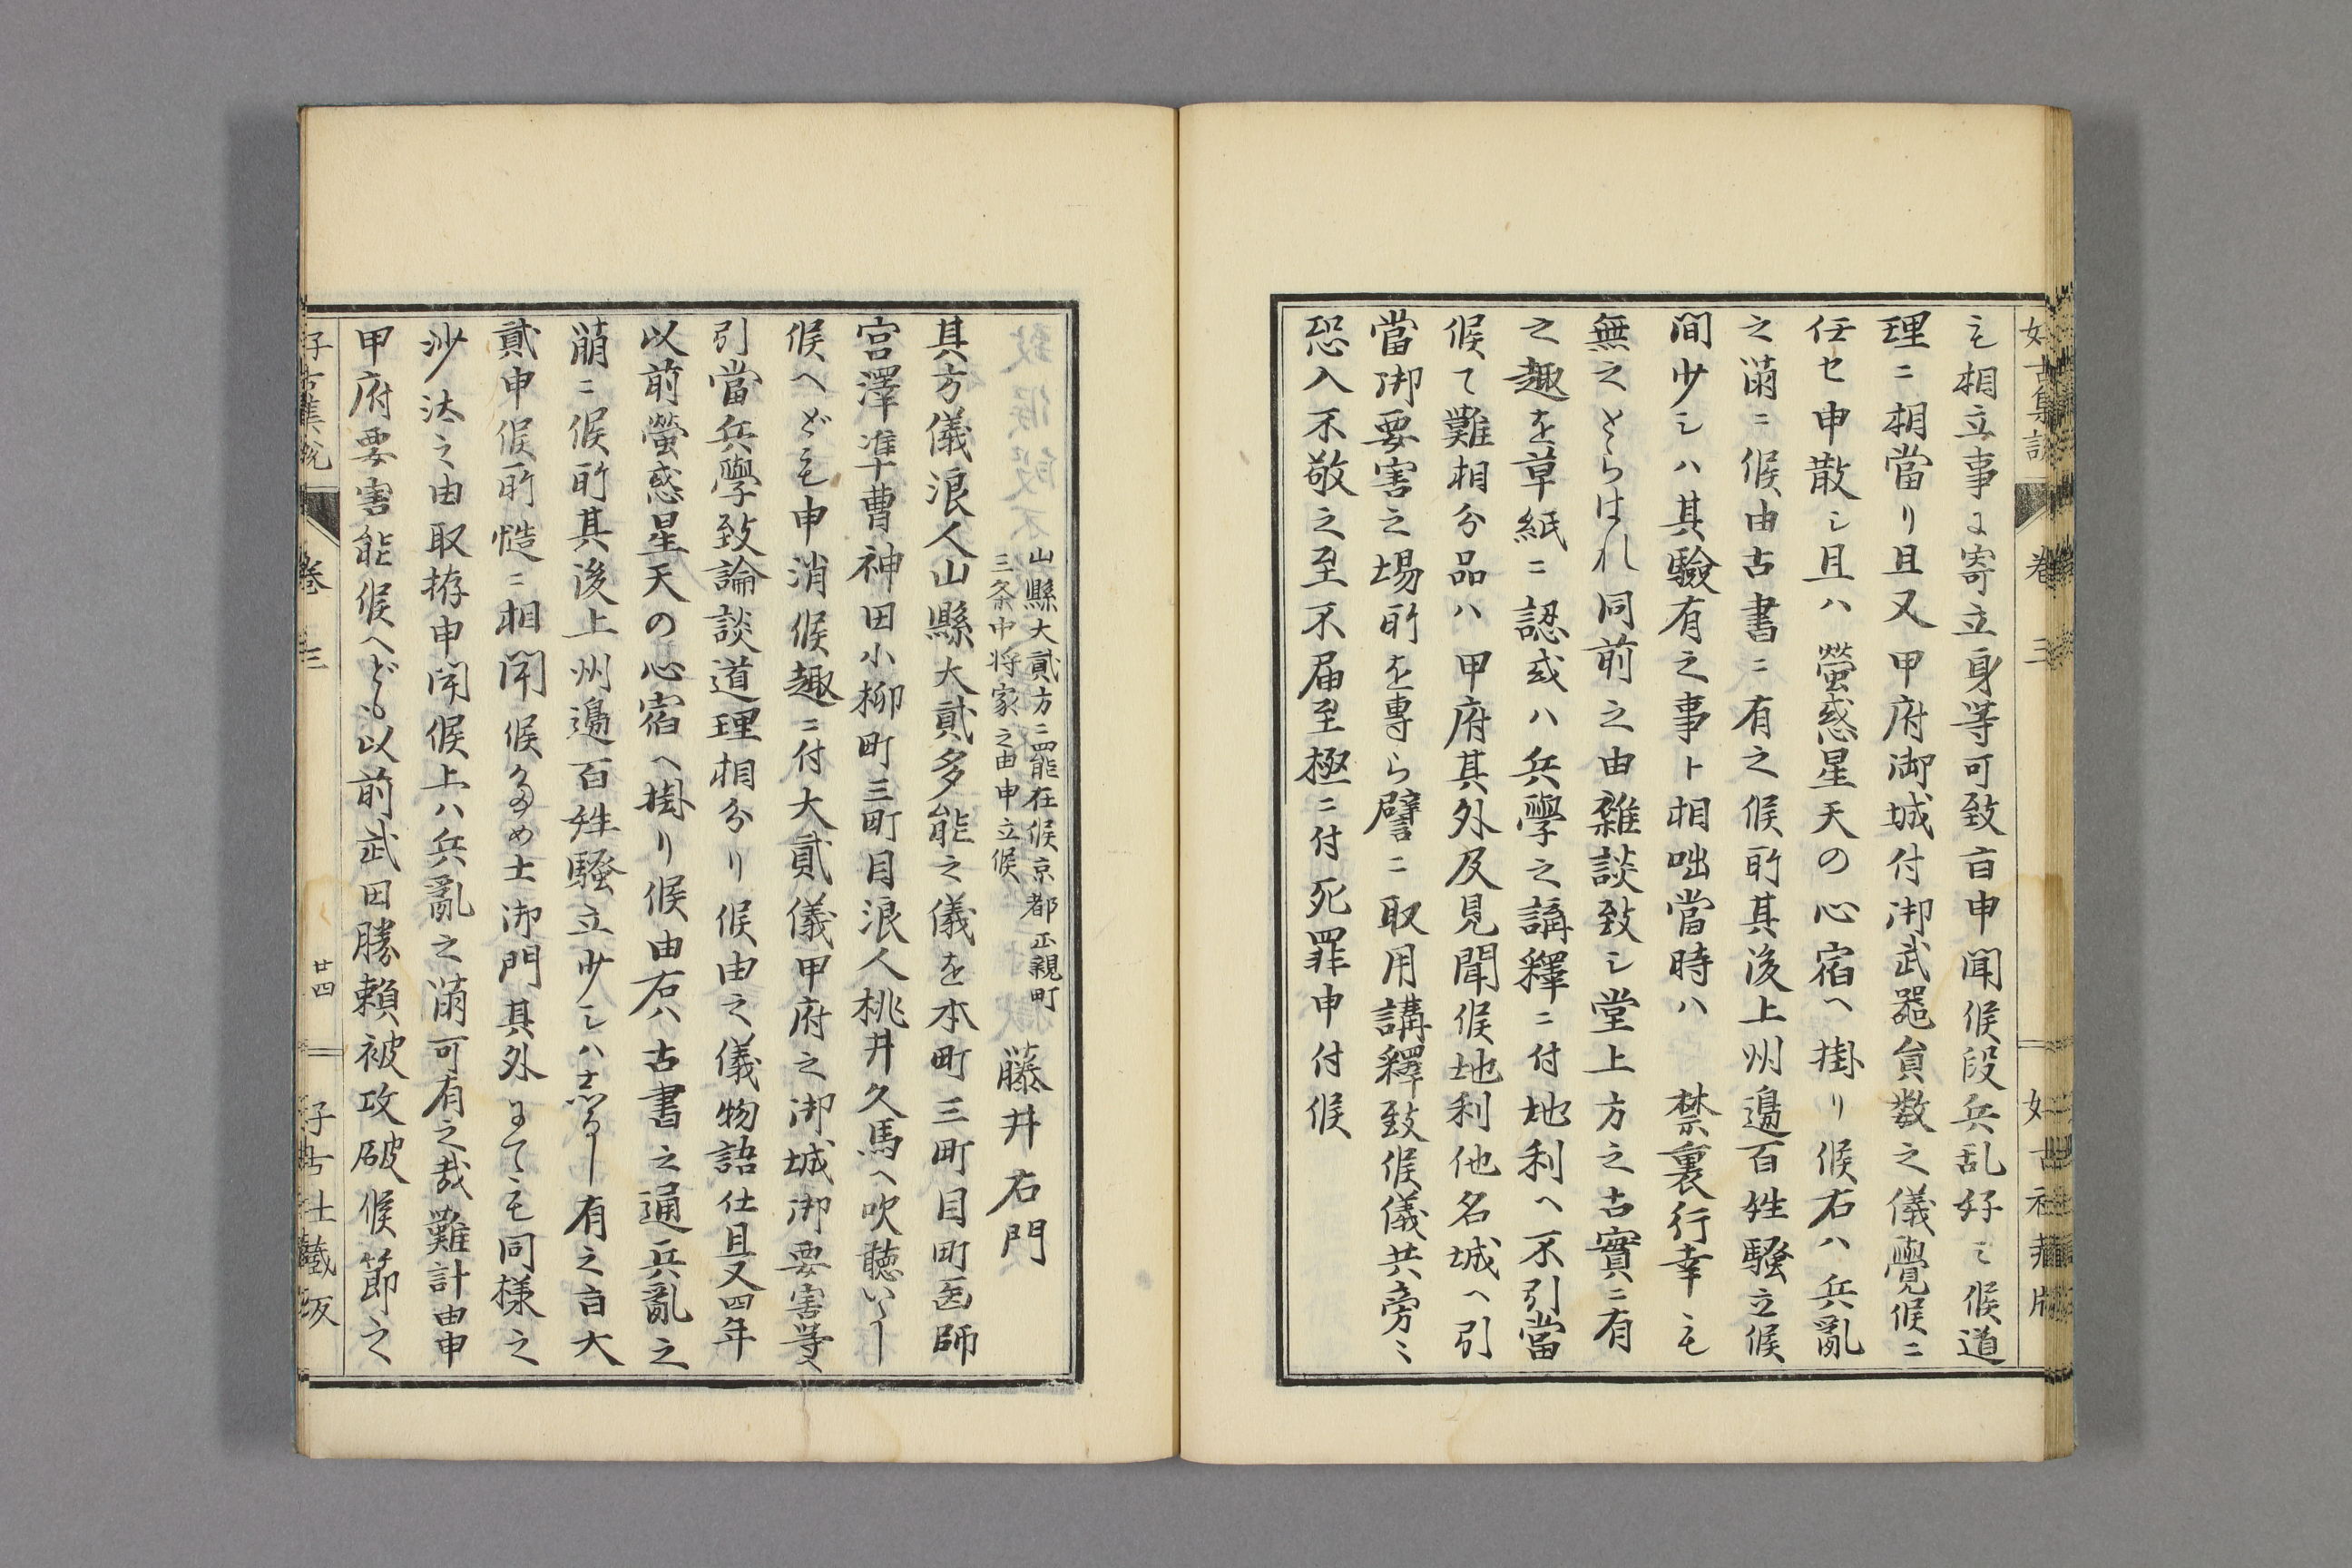 好古集説 卷三 好古社藏版
も相立事ニ寄立身等可致旨申聞候段兵乱好ミ候道
理ニ相當リ且又甲府御城付御武器員数之儀覺候ニ
任セ申散シ且ハ螢惑星天の心宿へ掛リ候右ハ兵亂
之萠ニ候由古書ニ有之候所其後上州邊百姓騒立候
間少シハ其驗有之事ト相咄當時ハ 禁裏行幸も
無之とらはれ同前之由雜談致シ堂上方之古實ニ有
之趣を草紙ニ認或ハ兵學之講釋ニ付地利へ不引當
候て難相分品ハ甲府其外及見聞候地利他名城へ引
當御要害之場所を專ら譬ニ取用講釋致候儀共旁ミ
恐入不敬之至不届至極ニ付死罪申付候
山縣大貳方ニ罷在候京都正親町
三条中将家之由申立候
藤井右門
其方儀浪人山縣大貳多能之儀を本町三町目町医師
宮澤準曹神田小柳町三町目浪人桃井久馬へ吹聴いたし
候へども申消候趣ニ付大貳儀甲府之御城御要害等へ
引當兵學致論談道理相分リ候由之儀物語仕且又四年
以前螢惑星天の心宿へ掛リ候由右ハ古書之通兵亂之
萠ニ候所其後上州邊百姓騒立少シハしるし有之旨大
貳申候所慥ニ相聞候ため士御門其外ニても同様之
沙汰之由取拵申聞候上ハ兵亂之萠可有之哉難計由申
甲府要害能候へども以前武田勝賴被攻破候節之
好古集説 卷三 廿四 好古社藏版